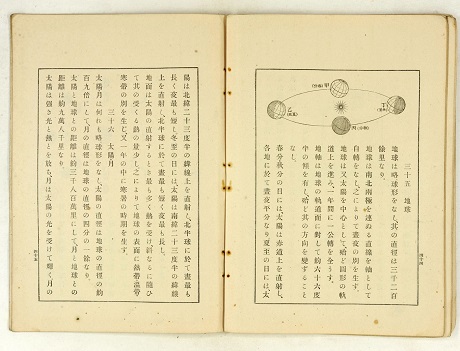 甲(春分)
乙
丙(秋分)
丁
三十五 地球
地球は略球形をなし、其の直徑は三千二百
餘里なり。
地球は南北兩極を連ぬる直線を軸として
自轉をなし、之によりて晝夜の別を生ず。
地球は又太陽を中心として、殆ど圓形の軌
道上を進み、一年間に一公轉を全うす。
地軸は地球の軌道面に對して約六十六度
半の傾を有し、殆ど其の方向を變ずること
なし。
春分秋分の日には太陽は赤道上を直射し、
各地に於て晝夜平分なり。夏至の日には、太
四十四
陽は北緯二十三度半の緯線上を直射し、北半球に於て晝最も
長く夜最も短し。冬至の日には太陽は南緯二十三度半の緯線
上を直射し、北半球に於て晝最も短く夜最も長し。
地面は太陽の直射するとき最も多く熱を受け、斜なるに隨ひ
て其の受くる熱の量少し。之によりて地球の表面に熱帶溫帶
寒帶の別を生じ、又一年の中に寒暑の時期を生ず。
三十六 太陽 月
太陽月は何れも略球形をなし、太陽の直徑は地球の直徑の約
百九倍にして、月の直徑は地球の四分の一餘なり。
太陽と地球との距離は約三千八百萬里にして、月と地球との
距離は約九萬八千里なり。
太陽は強き光と熱とを放ち、月は太陽の光を受けて輝く。月の
四十五